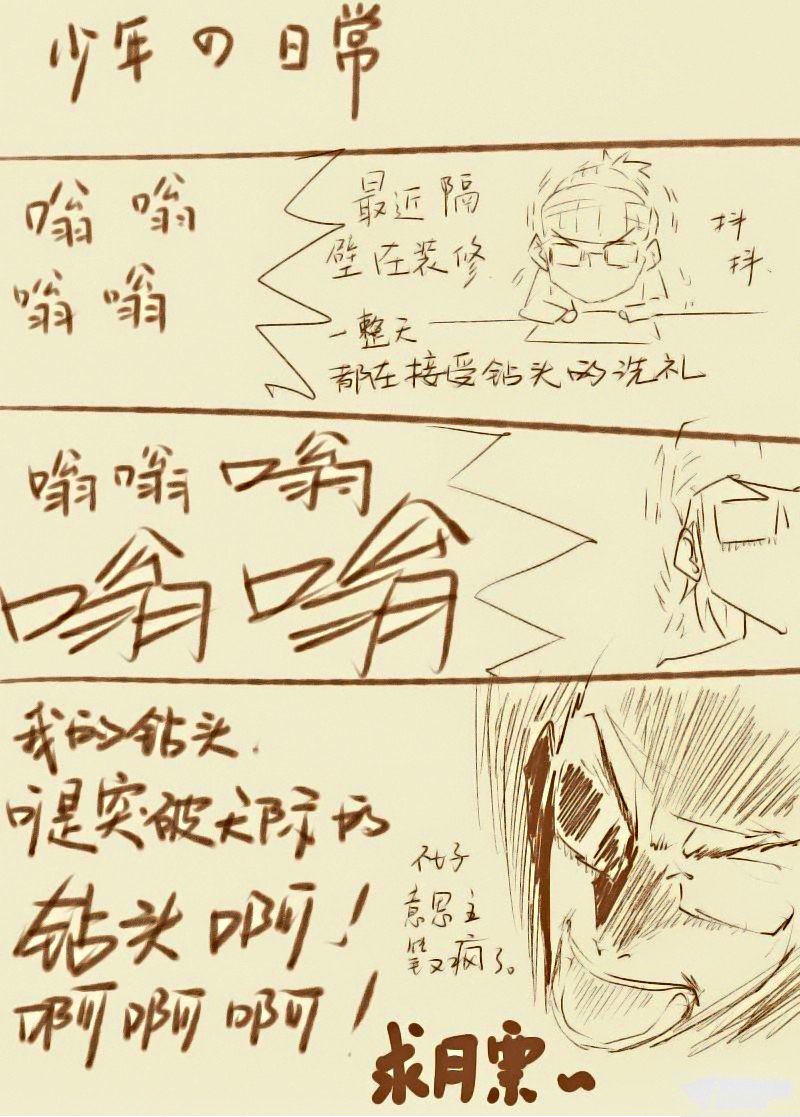 少年の日常
嗡 嗡
嗡 嗡
最近隔
壁在装修
一整天
都在接受钻头的洗礼
抖
抖
嗡 嗡 嗡
嗡 嗡
我的钻头
可是突破天际的
钻头啊!
啊啊啊!
不好
意思主
笔又疯了。
求月票~